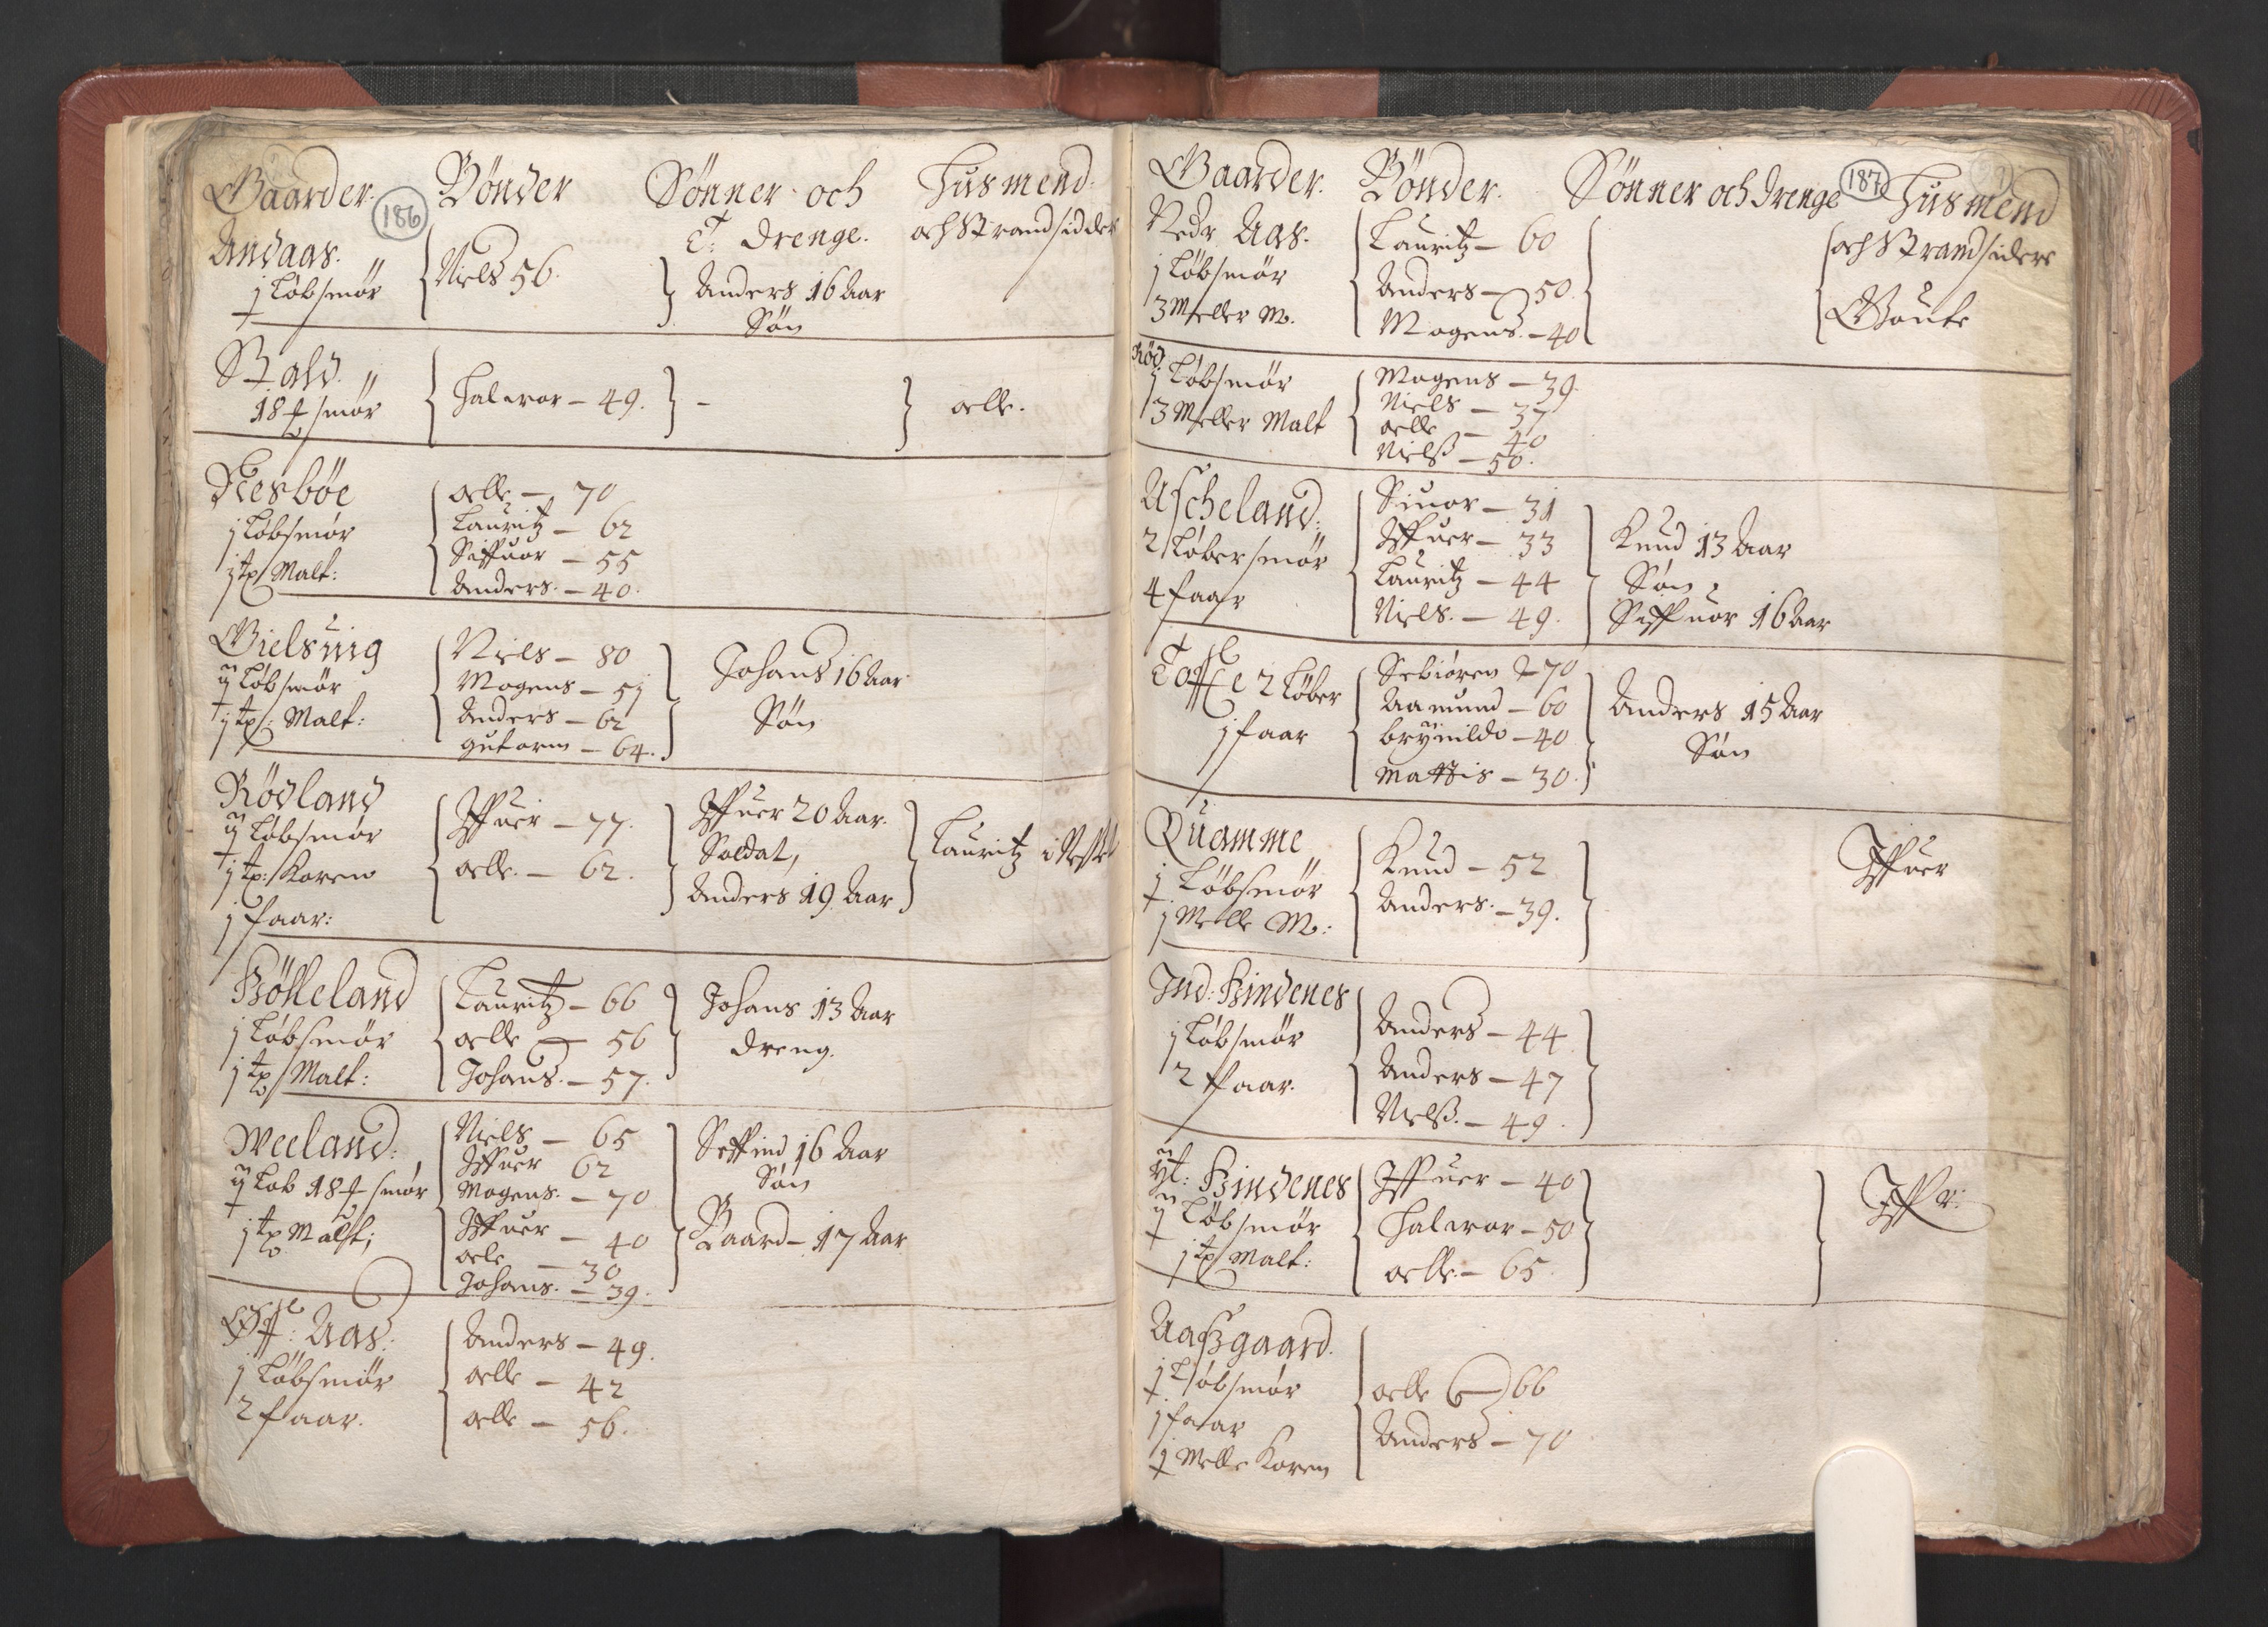 186
Gaarder. Bönder Sönner och Husmend:
Drenge. och Strandsidder
Andaas.
j Löbsmör
Niels 56.
Anders 16 Aar
Sön
Stald.
18 smör
Halvor – 49. – oelle.
Giesböe
j Löbsmör
j tp Malt:
oelle – 70
Lauritz – 62
Siffuor – 55
Anders. – 40.
Gielsuig
Löbsmör
j tp: Malt:
Niels – 80
Mogens – 51
Anders – 62
gutorm – 64.
Johans 16 Aar
Sön
Rödland
Löbsmör
j tp: Koren
j faar:
Iffuer – 77.
oelle. – 62.
Iffuer 20 Aar.
Soldat,
Anders 19 Aar
Lauritz
Böckeland
j Löbsmör
j tp Malt:
Lauritz – 66
oelle – 56
Johans. – 57.
Johans 13 Aar
dreng.
Weeland:
Löb 18 smör
j tp Malt;
Niels – 65
Iffuer 62
Mogens. – 70
Iffuer – 40
oele – 30
Johans. – 39.
Siffind 16 Aar
Sön
Baard – 17 Aar
Aas:
j Löbsmör
2 faar.
Anders – 49.
oelle – 42
oelle – 56.
187
Gaarder. Bönder. Sönner och drenge Husmend
och Strandsidere
Nedr Aas.
j Löbsmör
3 Meller M.
Lauritz – 60
Anders – 50.
Mogens. – 40
Goute
Röd
j Löbsmör
3 Meller Malt
Mogens – 39.
Niels – 37
oelle – 40
Nielß – 50.
Ascheland:
2 Löber smör
4 faar
Siuor – 31
Iffuer – 33
Lauritz – 44
Niels. – 49.
Knud 13 Aar
Sön
Siffuor 16 Aar
2 Löber
j faar
Sebiören – 70
Aamund – 60
brynild – 40
Mattis – 30.
Anders 15 Aar
Sön
Quamme
Löbsmör
j Melle M:
Knud – 52
Anders. – 39.
Iffuer
Ind: Bindenes
j Löbsmör
2 faar.
Anders – 44
Anders – 47
Nielß. – 49.
Yt: Bindenes
Löbsmör
j tp Malt:
Iffuer – 40
Halvor – 50
oelle – 65.
Iffr:
Aaßgaard.
Löbsmör
j faar
Melle Koren
oelle – 66
Anders – 70